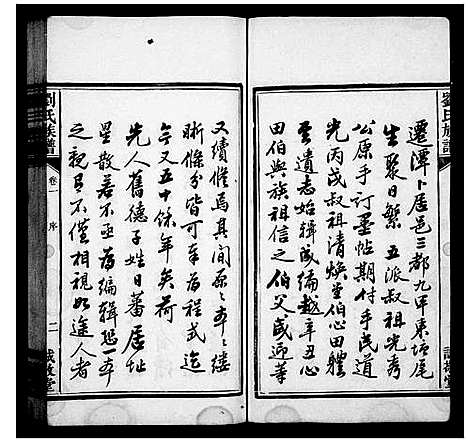 劉氏族譜
遷潭卜居邑三都九甲東塘尾
生聚日繁五派叔祖光秀
公原手訂墨帖期付手民道
光丙戌叔祖清煥堂伯心田體
雲遺志始輯成編越辛丑心
田伯與族祖信之伯父咸迎等
又續修焉其間原原本本縷
晰條分皆可奉為程式迄
今又五十餘年矣荷
先人舊德子姓日蕃居址
星散若不亟為編輯延一本
之親日不僅相視如途人者
劉氏族譜
卷一
序
二
敬堂